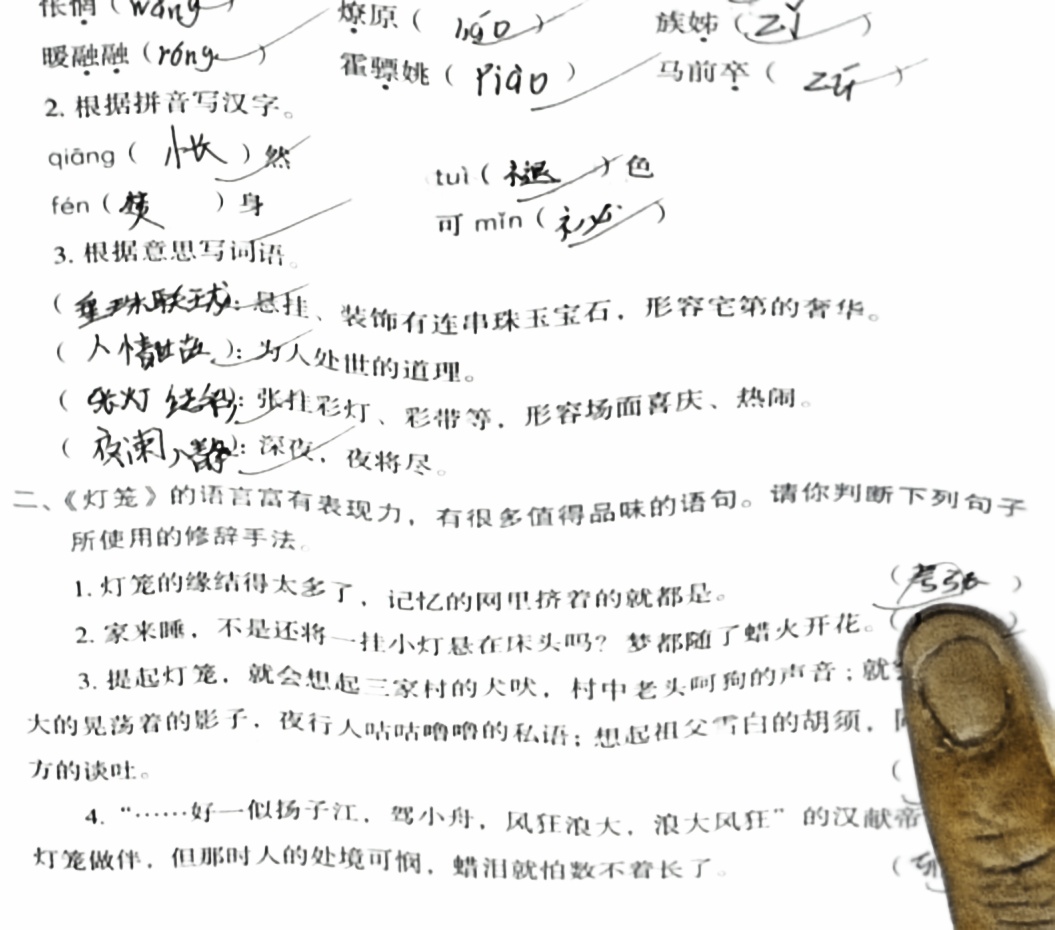 怅惘（wǎng）　燎原（liáo）　族姊（zǐ）
暖融融（róng）　霍骠姚（piào）　马前卒（zú）
2. 根据拼音写汉字。
qiāng（怅）然　tuì（褪）色
fén（焚）身　可 mǐn（）
3. 根据意思写词语。
（垂珠联珑）：悬挂、装饰有连串珠玉宝石，形容宅第的奢华。
（人情世故）：为人处世的道理。
（张灯结彩）：张挂彩灯、彩带等，形容场面喜庆、热闹。
（夜阑人静）：深夜，夜将尽。
二、《灯笼》的语言富有表现力，有很多值得品味的语句。请你判断下列句子
所使用的修辞手法。
1. 灯笼的缘结得太多了，记忆的网里挤着的就都是。（）
2. 家来睡，不是还将一挂小灯悬在床头吗？梦都随了蜡火开花。（
3. 提起灯笼，就会想起三家村的犬吠，村中老头呵狗的声音；就
大的晃荡着的影子，夜行人咕咕噜噜的私语；想起祖父雪白的胡须，
方的谈吐。（
4. “……好一似扬子江，驾小舟，风狂浪大，浪大风狂”的汉献帝
灯笼做伴，但那时人的处境可悯，蜡泪就怕数不着长了。（